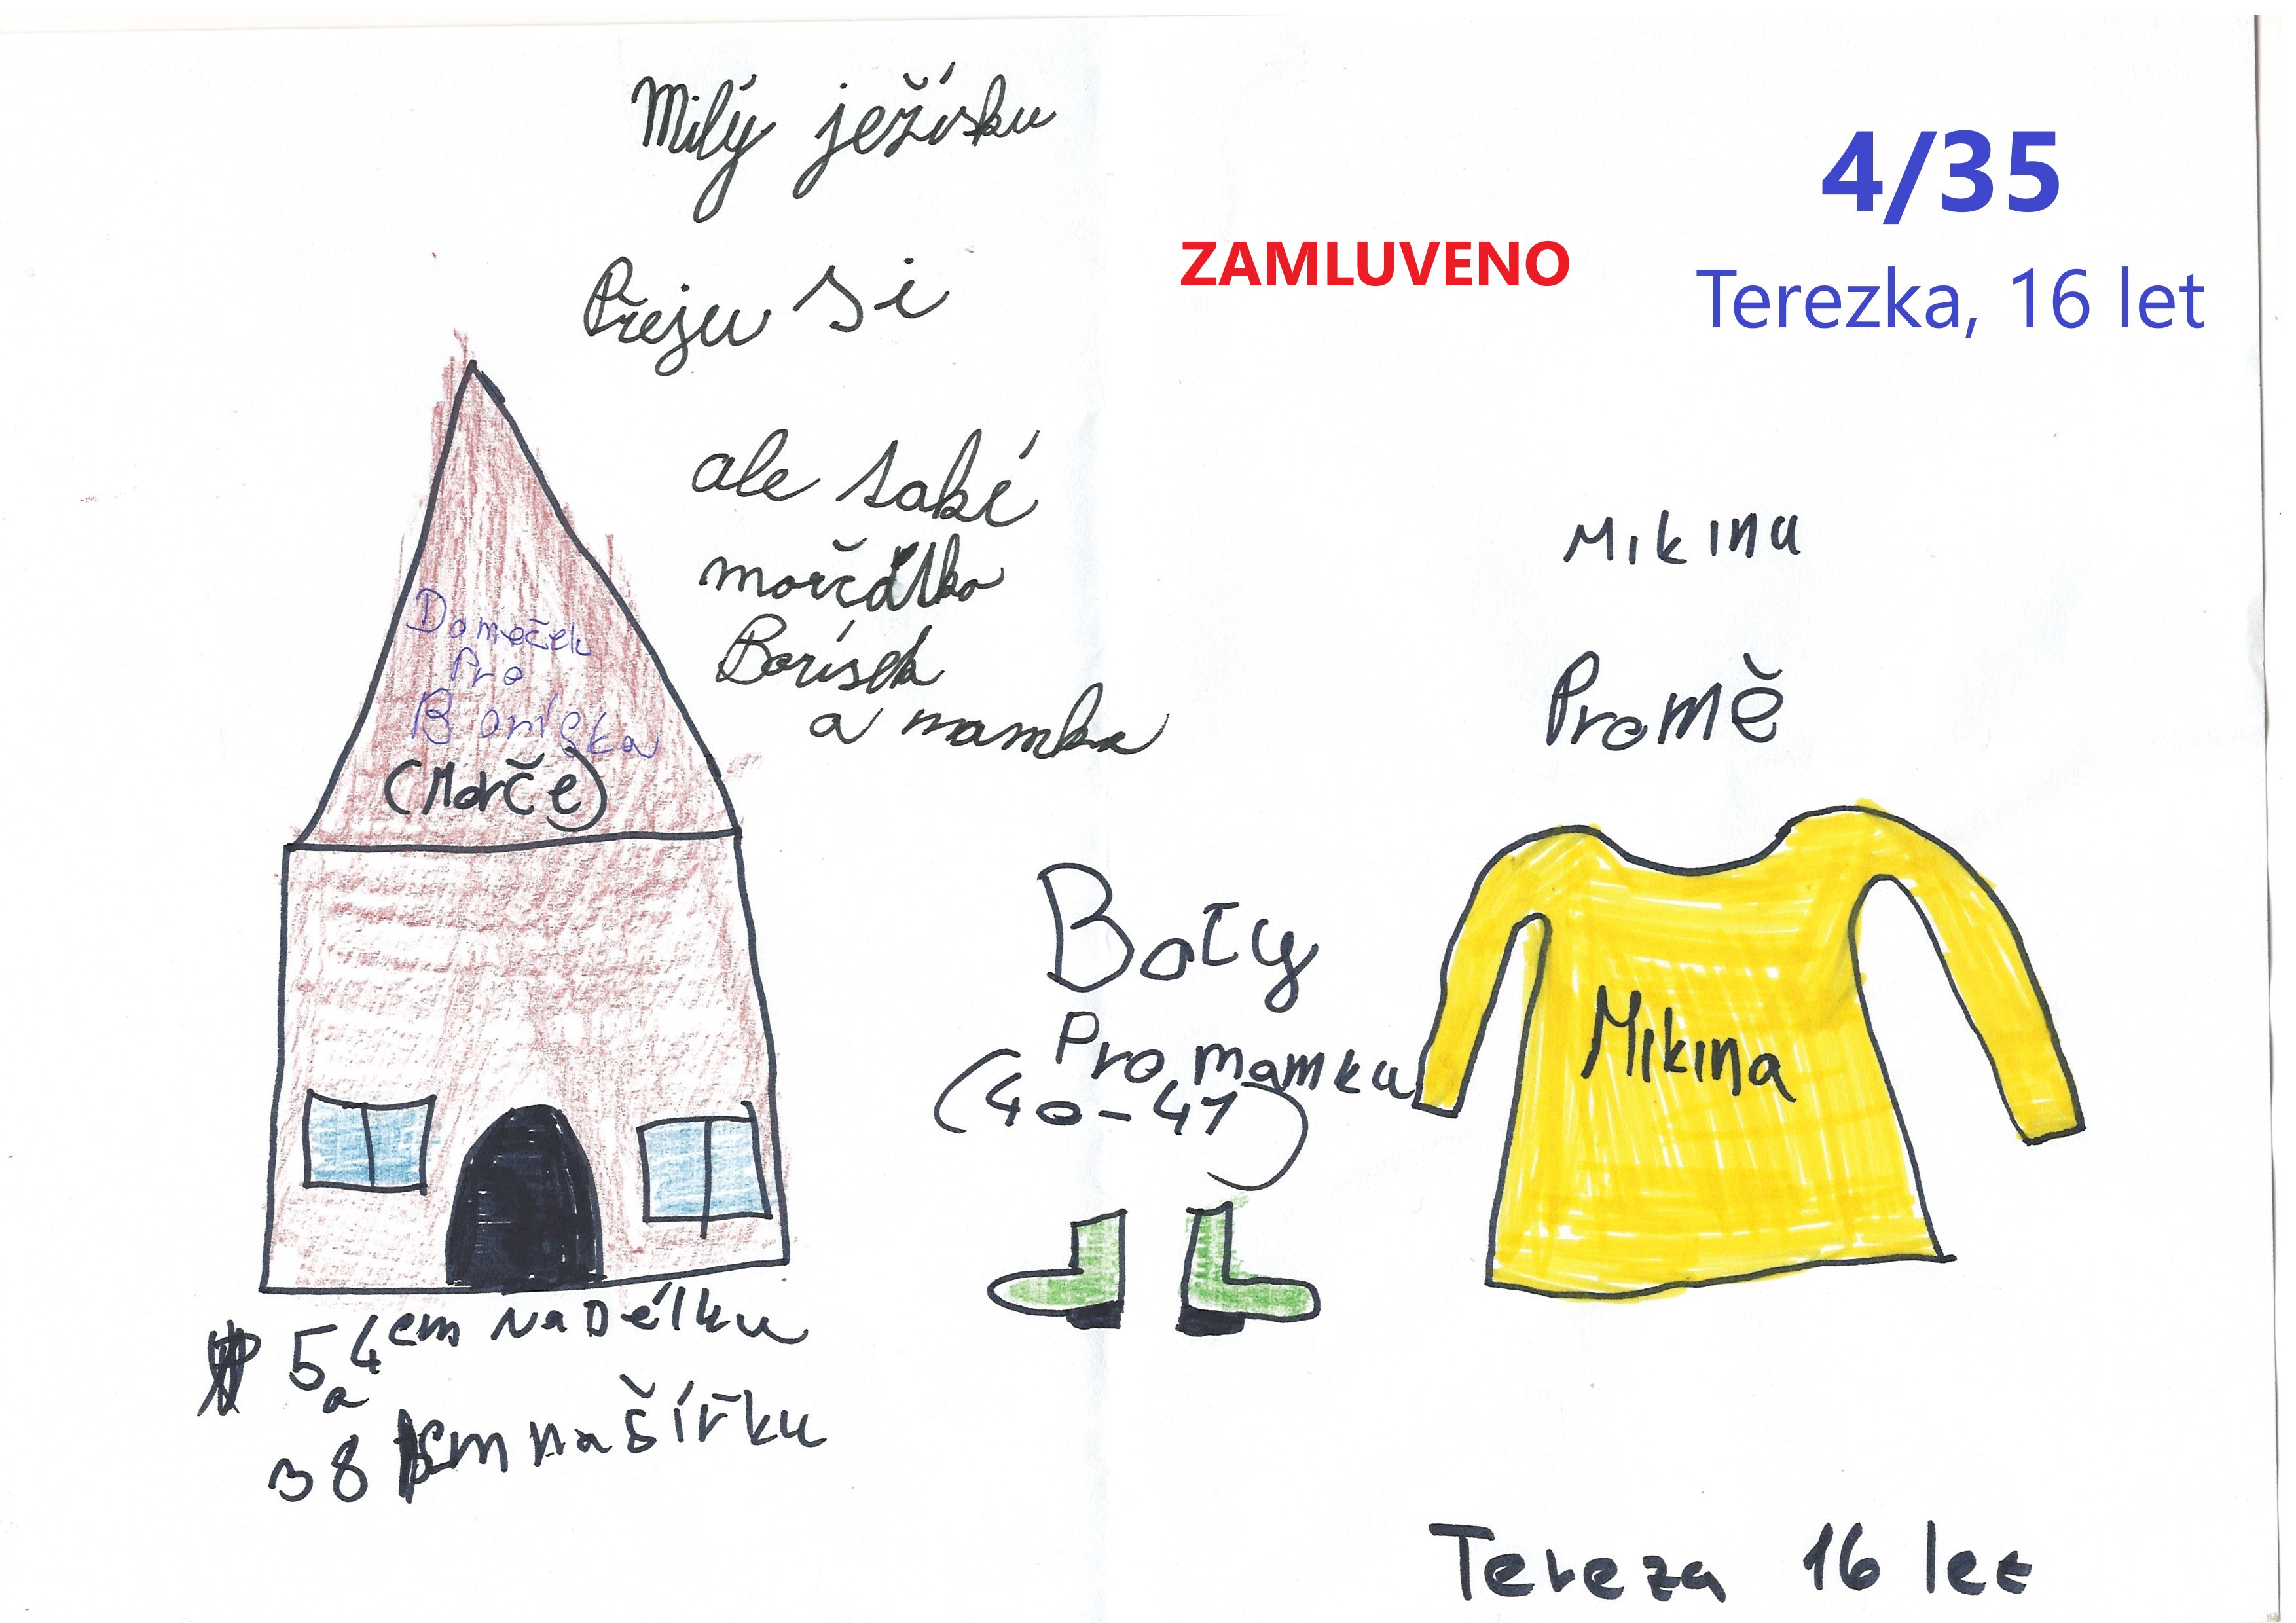 Milý ježísku
4/35
ZAMLUVENO
Terezka, 16 let
Přeju si
ale také
morčátko
Borísek
a mamka
Mikinu
Promě
Domeček
Pro
Boríska
(Morče)
Boty
Pro mamku
(40-41)
Mikina
54 cm na Délku
a
38 cm na šířku
Tereza 16 let